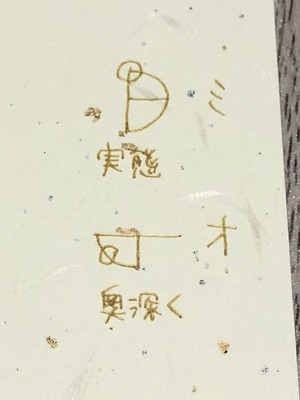 ミ
実態
オ
奥深く